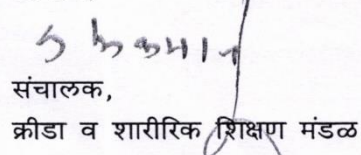 संचालक,
क्रीडा व शारीरिक शिक्षण मंडळ